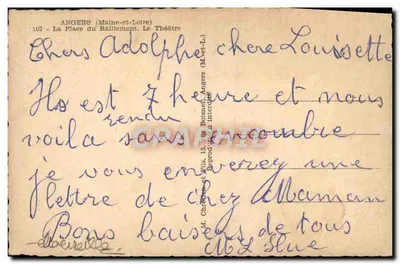 ANGERS (Maine-et-Loire)
102 - La Place du Ralliement. Le Théâtre
Chers Adolphe chere Louisette
Il est 7 heure et nous
voila rendu sans encombre
je vous enverez une
lettre de chez Maman
Bons baisers de tous